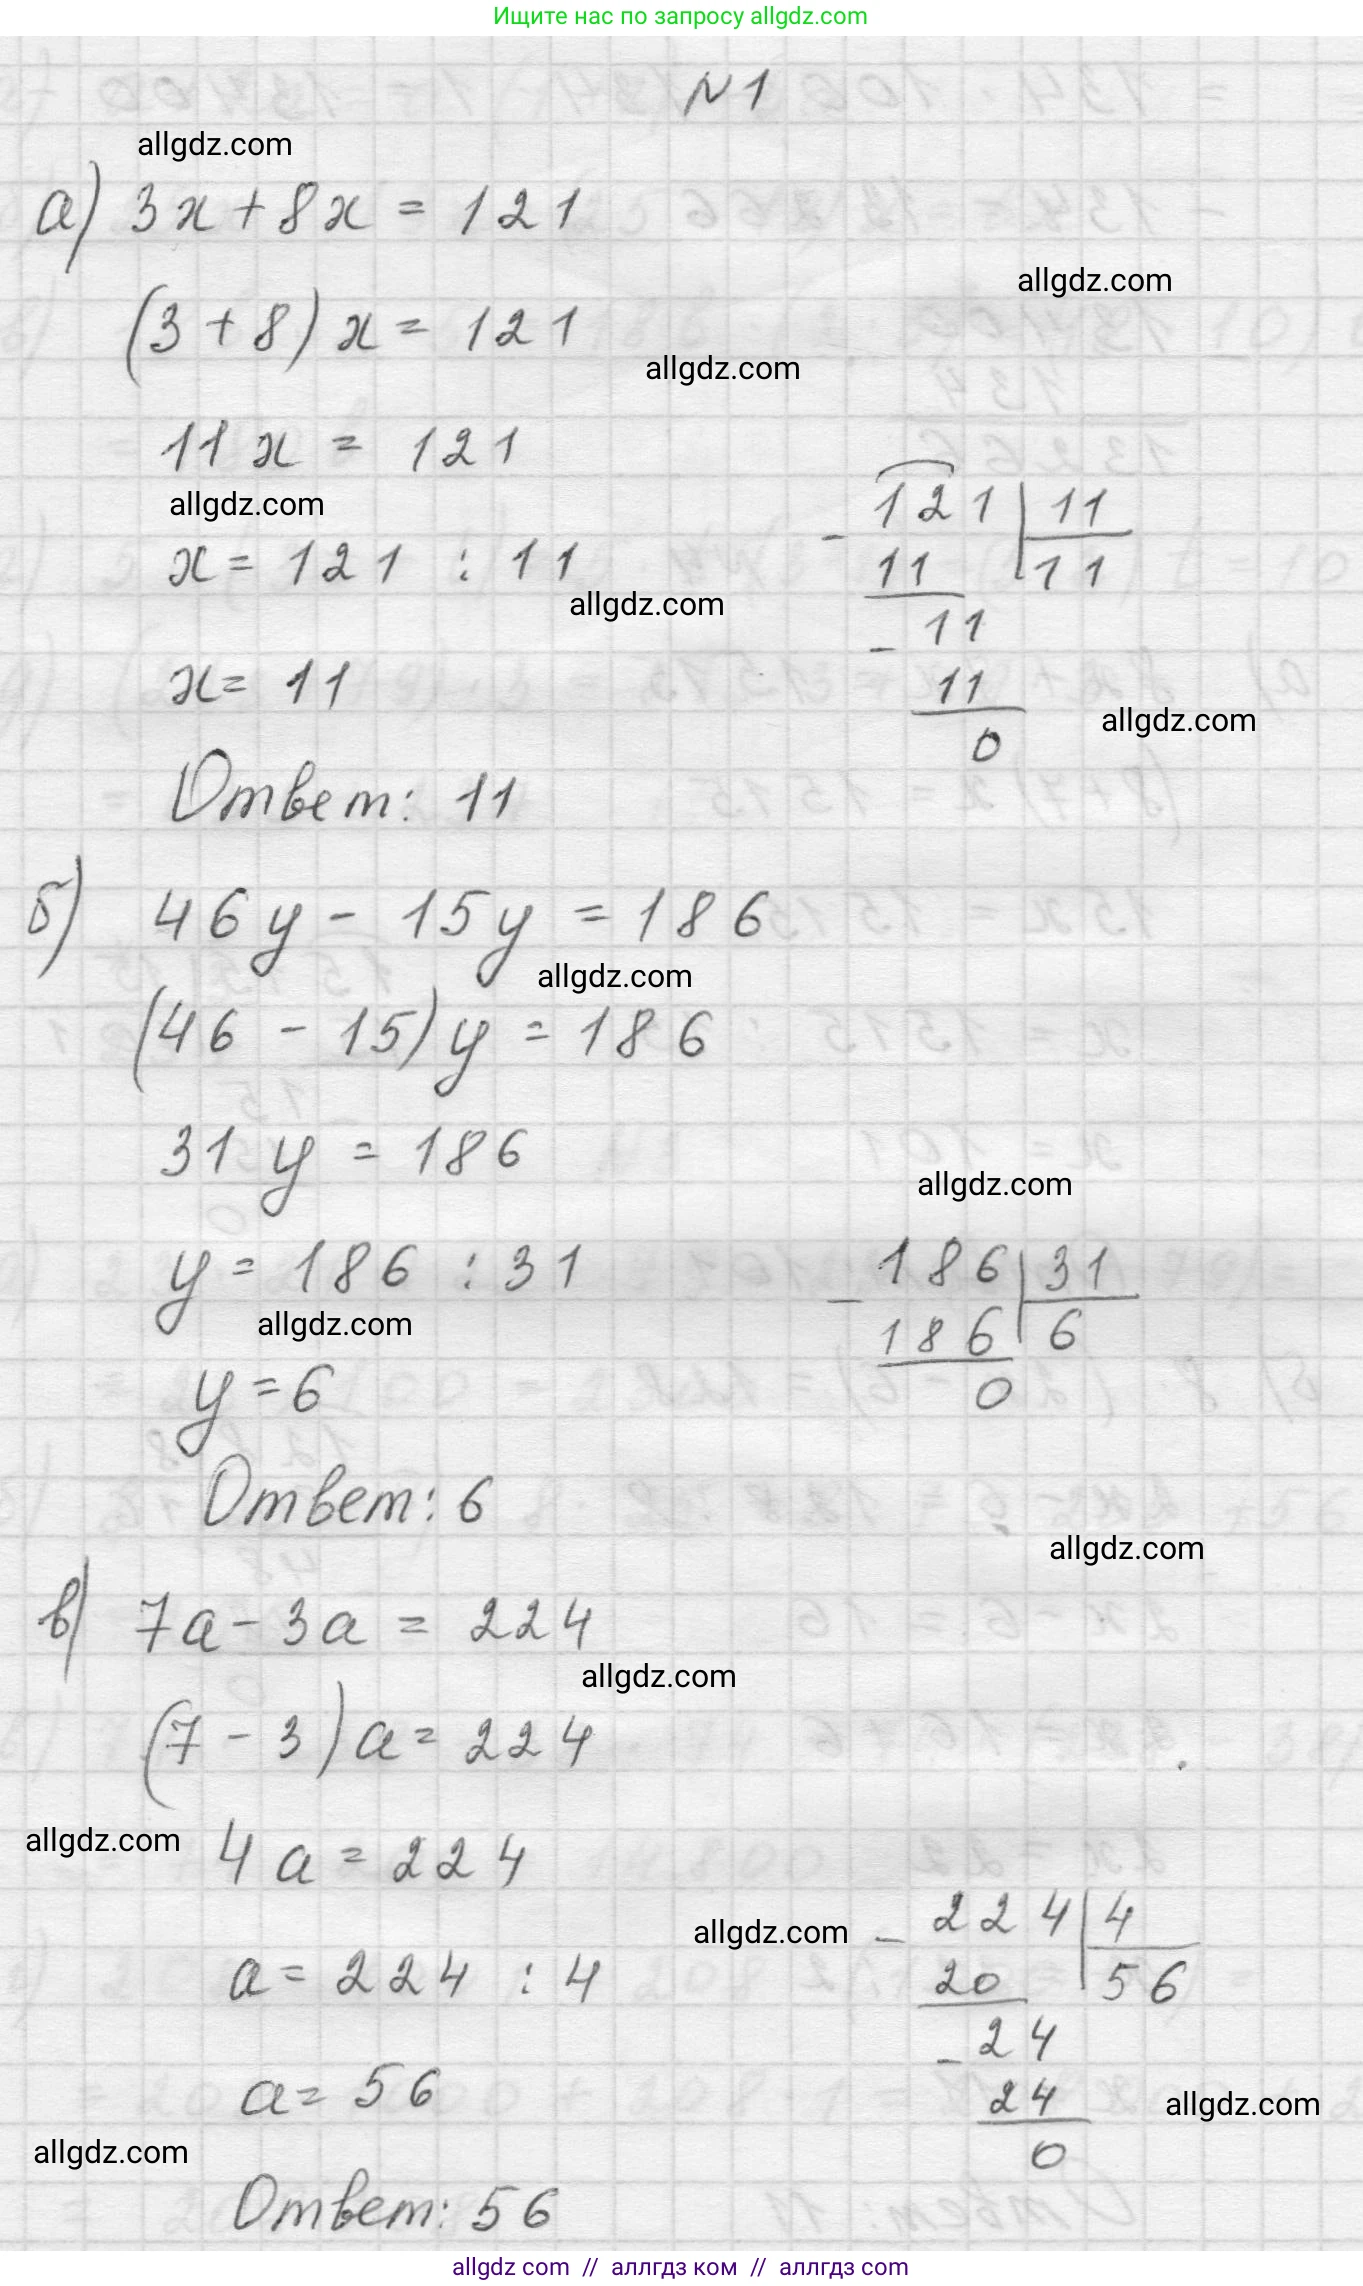 Ищите нас по запросу allgdz.com
N 1
allgdz.com
а) 3x + 8x = 121
allgdz.com
(3 + 8) x = 121
allgdz.com
11 x = 121
allgdz.com
x = 121 : 11
allgdz.com
x = 11
- 121 | 11
11 11
- 11
11
0
allgdz.com
Ответ: 11
б) 46y - 15y = 186
allgdz.com
(46 - 15) y = 186
31 y = 186
allgdz.com
y = 186 : 31
allgdz.com
y = 6
- 186 | 31
186 6
0
Ответ: 6
allgdz.com
в) 7a - 3a = 224
allgdz.com
(7 - 3) a = 224
allgdz.com
4 a = 224
allgdz.com
a = 224 : 4
- 224 | 4
20 56
- 24
24
0
a = 56
allgdz.com
allgdz.com
Ответ: 56
allgdz com // аллгдз ком // алгдз com